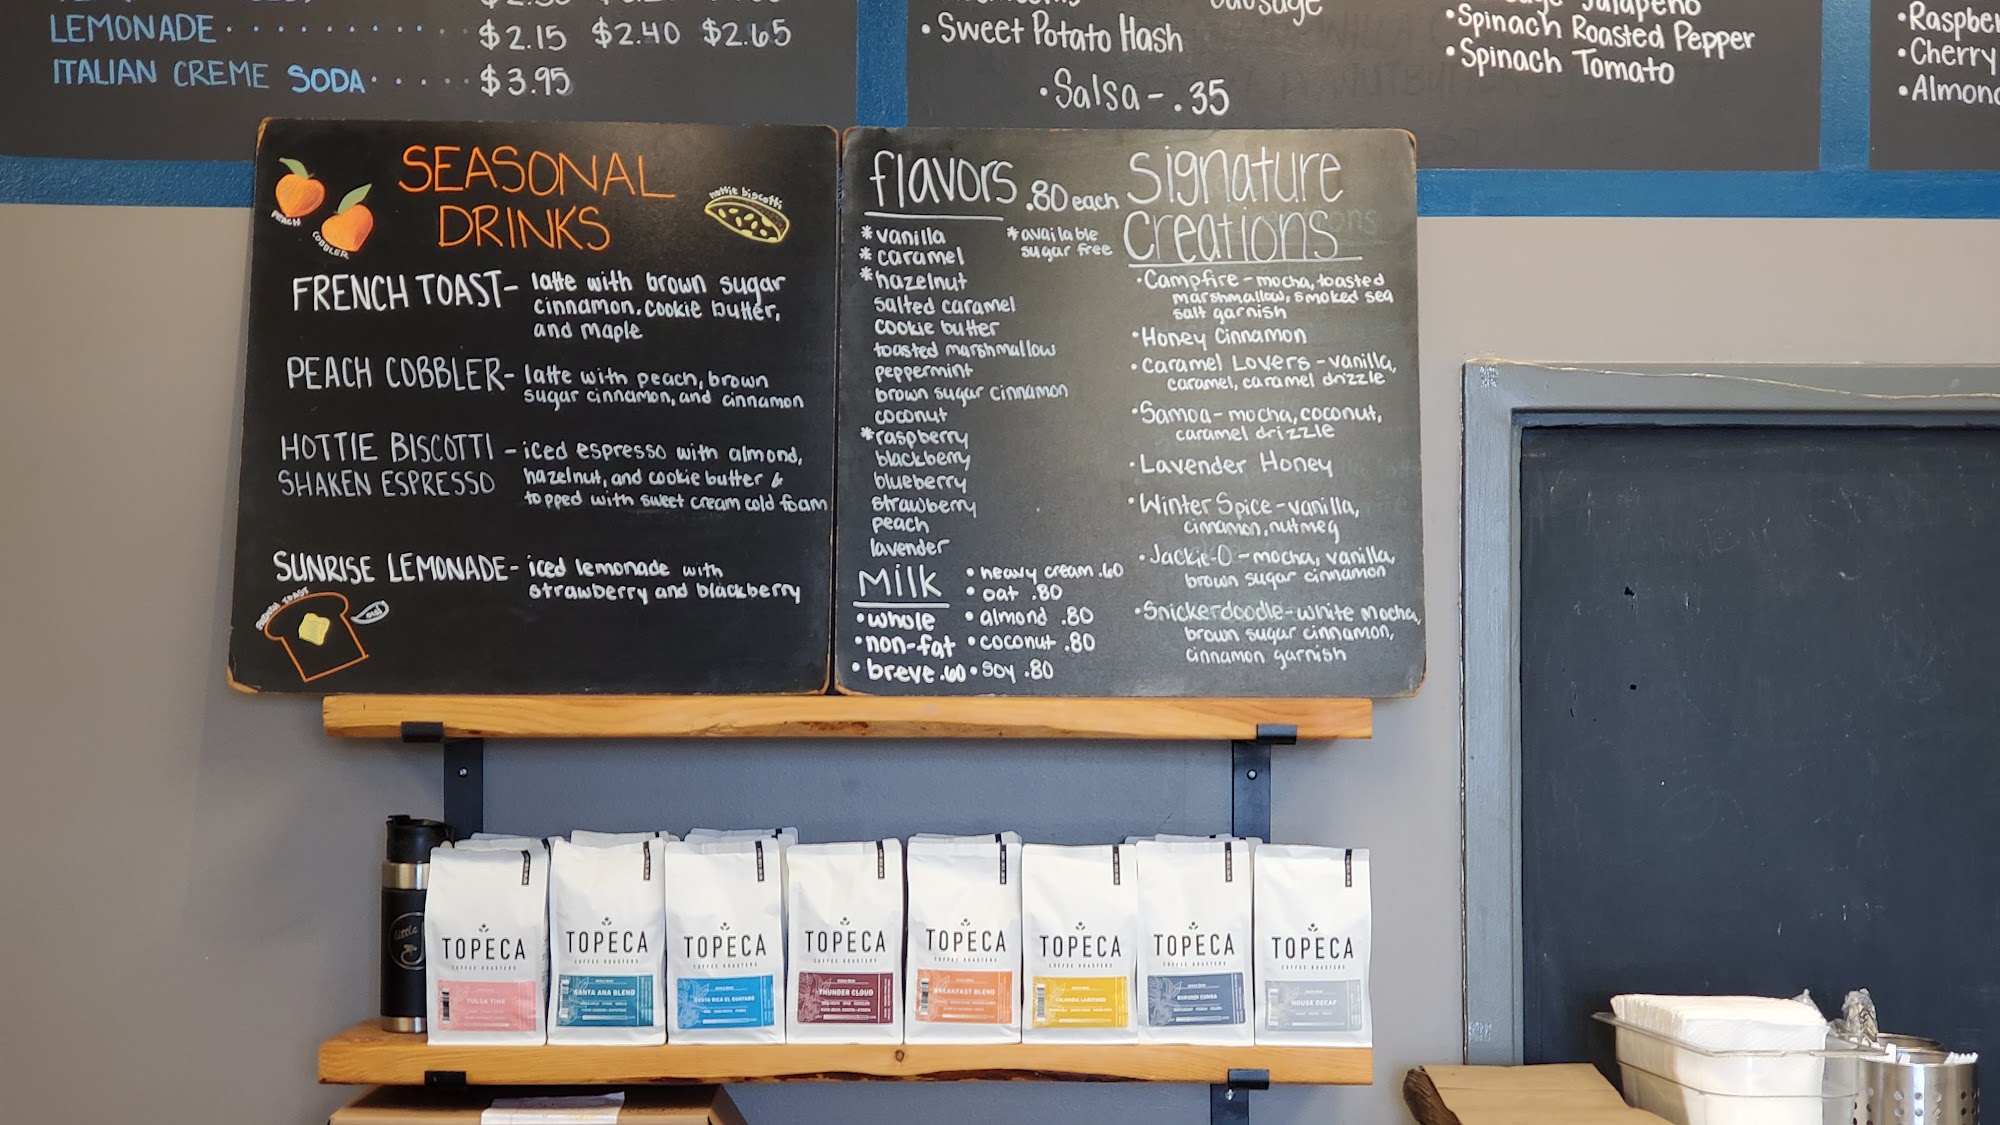 LEMONADE $2.15 $2.40 $2.65
ITALIAN CREME SODA $3.95
• Sweet Potato Hash
• Salsa - .35
Jalapeno
• Spinach Roasted Pepper
• Spinach Tomato
• Cherry
SEASONAL
DRINKS
PEACH
COBBLER
hottie biscotti
FRENCH TOAST - latte with brown sugar
cinnamon, cookie butter,
and maple
PEACH COBBLER - latte with peach, brown
sugar cinnamon, and cinnamon
HOTTIE BISCOTTI - iced espresso with almond,
SHAKEN ESPRESSO hazelnut, and cookie butter &
topped with sweet cream cold foam
SUNRISE LEMONADE - iced lemonade with
strawberry and blackberry
FRENCH TOAST
flavors .80 each
* available
sugar free
* vanilla
* caramel
* hazelnut
salted caramel
cookie butter
toasted marshmallow
peppermint
brown sugar cinnamon
coconut
* raspberry
blackberry
blueberry
strawberry
peach
lavender
milk
• whole
• non-fat
• breve .60
• heavy cream .60
• oat .80
• almond .80
• coconut .80
• soy .80
signature
creations
• Campfire - mocha, toasted
marshmallow, smoked sea
salt garnish
• Honey Cinnamon
• Caramel Lovers - vanilla,
caramel, caramel drizzle
• Samoa - mocha, coconut,
caramel drizzle
• Lavender Honey
• Winter Spice - vanilla,
cinnamon, nutmeg
• Jackie-O - mocha, vanilla,
brown sugar cinnamon
• Snickerdoodle - white mocha,
brown sugar cinnamon,
cinnamon garnish
little
TOPECA
COFFEE ROASTERS
TULSA TIME
TOPECA
COFFEE ROASTERS
SANTA ANA BLEND
TOPECA
COFFEE ROASTERS
COSTA RICA EL GUAYABO
TOPECA
COFFEE ROASTERS
THUNDER CLOUD
TOPECA
COFFEE ROASTERS
BREAKFAST BLEND
TOPECA
COFFEE ROASTERS
COLOMBIA
TOPECA
COFFEE ROASTERS
BURUNDI
TOPECA
COFFEE ROASTERS
HOUSE DECAF